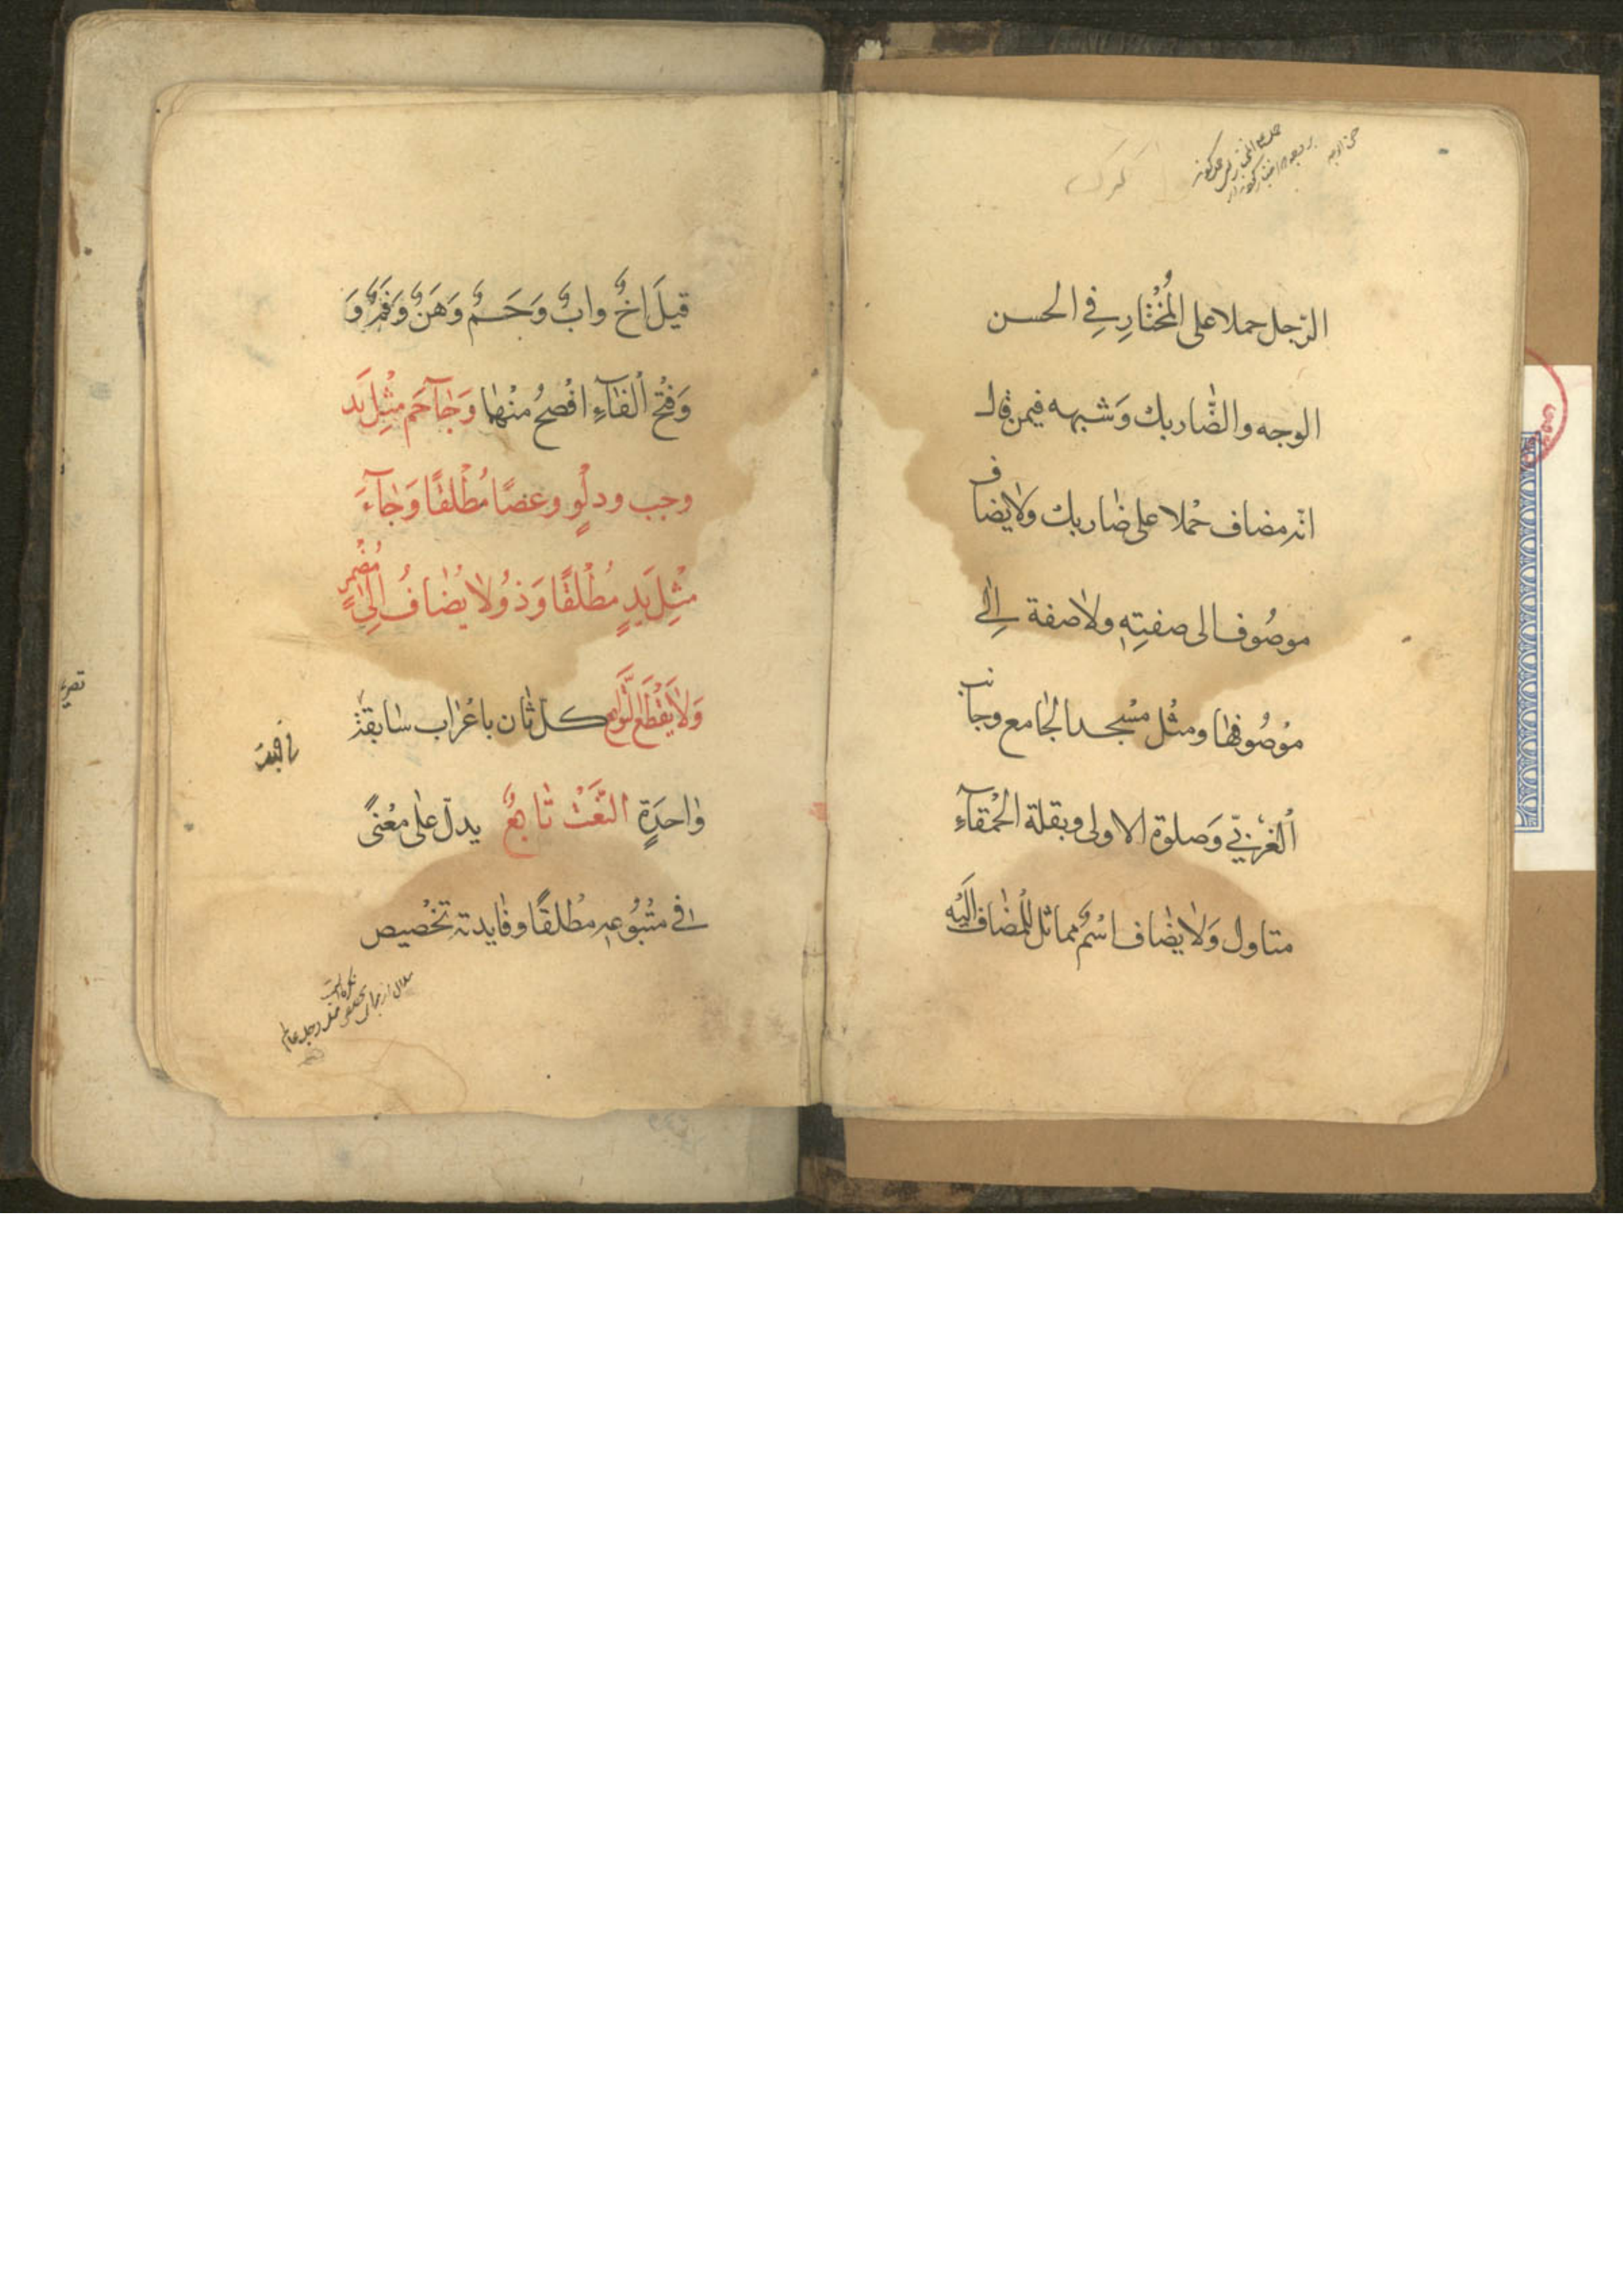 الرّجل حملا على المُخْتٰارِ فِي الحسن
الوجه والضّٰاربك وَشبهه فيمن قٰال
انّه مضاف حْملا على ضٰاربك وَلٰايضٰاف
موصُوف الى صفتِهٖ ولٰاصفة اِلٰى
موْصُوفهٰا ومثْل مسْجد الجٰامع وجٰانب
الْغرْبيّ وَصلوة الاولى وبقلة الحْمقآءِ
متاول وَلٰايضٰاف اسْمٌ مماثل للْمضٰاف اليْه
قيلَ اخٌ وابٌ وَحَمٌ وَهَنٌ وَفَمٌ وَ
وَفتْح الْفٰآءِ افْصحُ منْهٰا وَجٰآحَم مثْلِ يَد
وخب ودلْوٍ وعصًا مُطْلقًا وَجٰآءَ
مثْلِ يَدٍ مُطْلقًا وَذوُ لٰا يُضٰافُ اِلٰى مُضْمرٍ
وَلٰايَقْطَع التّوٰابع كلّ ثٰان باعْرٰاب سٰابقهٖ
وٰاحدَةٍ النَّعْتُ تٰابعٌ يدلّ علٰى معْنىً
فى متْبُوعهٖ مطْلقًا وفٰايدته تخْصيص